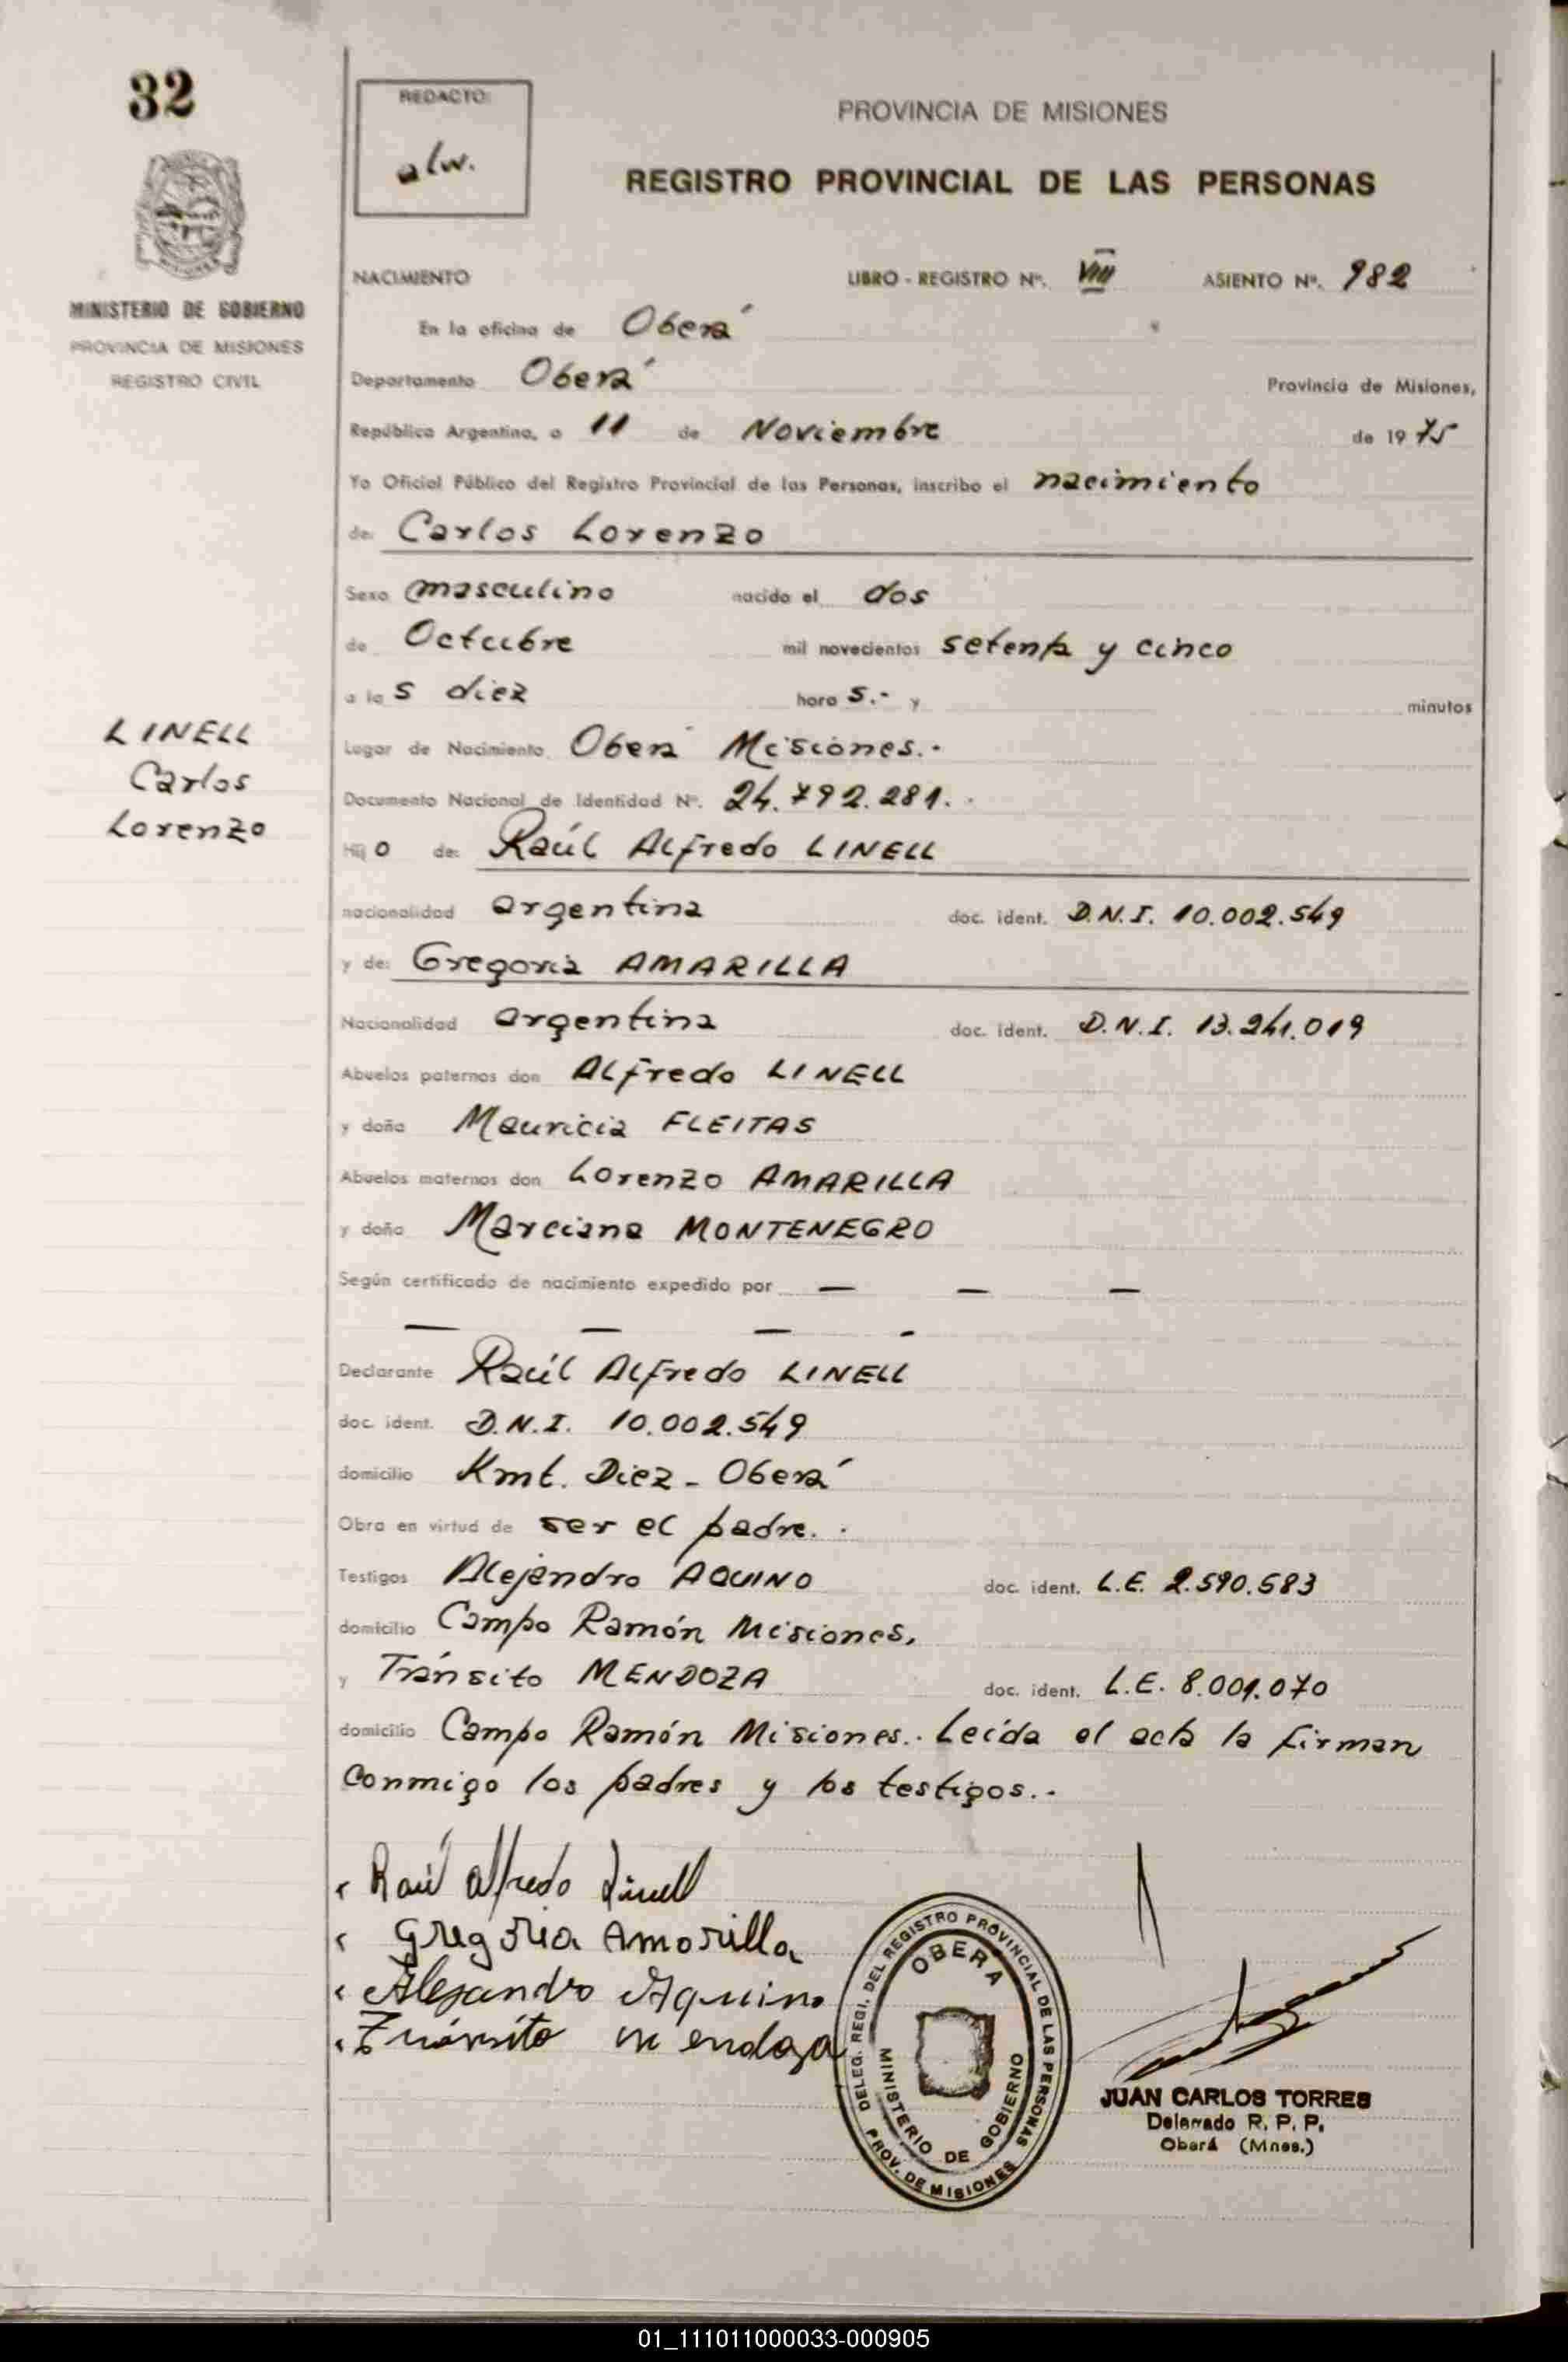 32
REDACTO:
alw.
PROVINCIA DE MISIONES
REGISTRO PROVINCIAL DE LAS PERSONAS
MINISTERIO DE GOBIERNO
PROVINCIA DE MISIONES
REGISTRO CIVIL
NACIMIENTO LIBRO - REGISTRO Nº. VIII ASIENTO Nº. 982
En la oficina de Oberá
Departamento Oberá Provincia de Misiones,
República Argentina, a 11 de Noviembre de 1975
Yo Oficial Público del Registro Provincial de las Personas, inscribo el nacimiento
de: Carlos Lorenzo
Sexo masculino nacido el dos
de Octubre mil novecientos setenta y cinco
a las diez horas.- y minutos
Lugar de Nacimiento Oberá Misiones.-
Documento Nacional de Identidad Nº. 24.792.281.-
LINELL
Carlos
Lorenzo
Hijo de: Raúl Alfredo LINELL
nacionalidad argentina doc. ident. D.N.I. 10.002.549
y de: Gregoria AMARILLA
Nacionalidad argentina doc. ident. D.N.I. 13.241.019
Abuelos paternos don Alfredo LINELL
y doña Mauricia FLEITAS
Abuelos maternos don Lorenzo AMARILLA
y doña Marciana MONTENEGRO
Según certificado de nacimiento expedido por — — —
— — — -
Declarante Raúl Alfredo LINELL
doc. ident. D.N.I. 10.002.549
domicilio Kmt. Diez - Oberá
Obra en virtud de ser el padre. .
Testigos Alejandro AQUINO doc. ident. L.E. 2.590.583
domicilio Campo Ramón Misiones,
y Tránsito MENDOZA doc. ident. L.E. 8.001.070
domicilio Campo Ramón Misiones.. Leída el acta la firman
conmigo los padres y los testigos..
Raúl Alfredo Linell
Gregoria Amarilla
Alejandro Aquino
Tránsito mendoza
DELEG. REGI. DEL REGISTRO PROVINCIAL DE LAS PERSONAS
OBERA
MINISTERIO DE GOBIERNO
PROV. DE MISIONES
JUAN CARLOS TORRES
Delegado R. P. P.
Oberá (Mnes.)
01_111011000033-000905